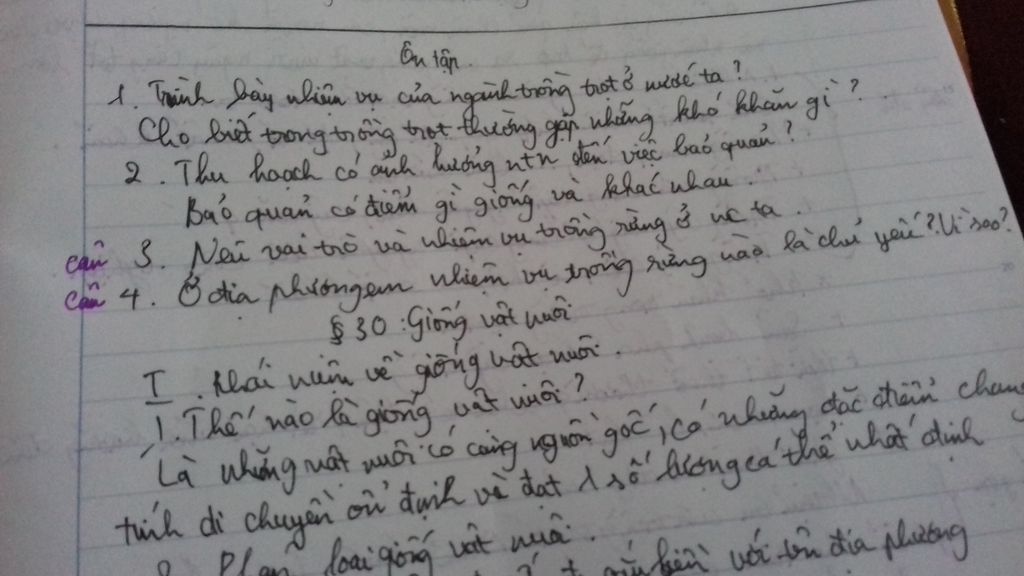 Ôn tập
1. Trình bày nhiệm vụ của ngành trồng trọt ở nước ta?
Cho biết trong trồng trọt thường gặp những khó khăn gì?
2. Thu hoạch có ảnh hưởng ntn đến việc bảo quản?
Bảo quản có điểm gì giống và khác nhau.
câu 3. Nêu vai trò và nhiệm vụ trồng rừng ở nc ta.
Câu 4. Ở địa phương em nhiệm vụ trồng rừng nào là chủ yếu? Vì sao?
§ 30: Giống vật nuôi
I. Khái niệm về giống vật nuôi.
1. Thế nào là giống vật nuôi?
Là những vật nuôi có cùng nguồn gốc, có những đặc điểm chung
tính di chuyền ổn định và đạt 1 số lượng cá thể nhất định
2. Phân loại giống vật nuôi.
với tên địa phương